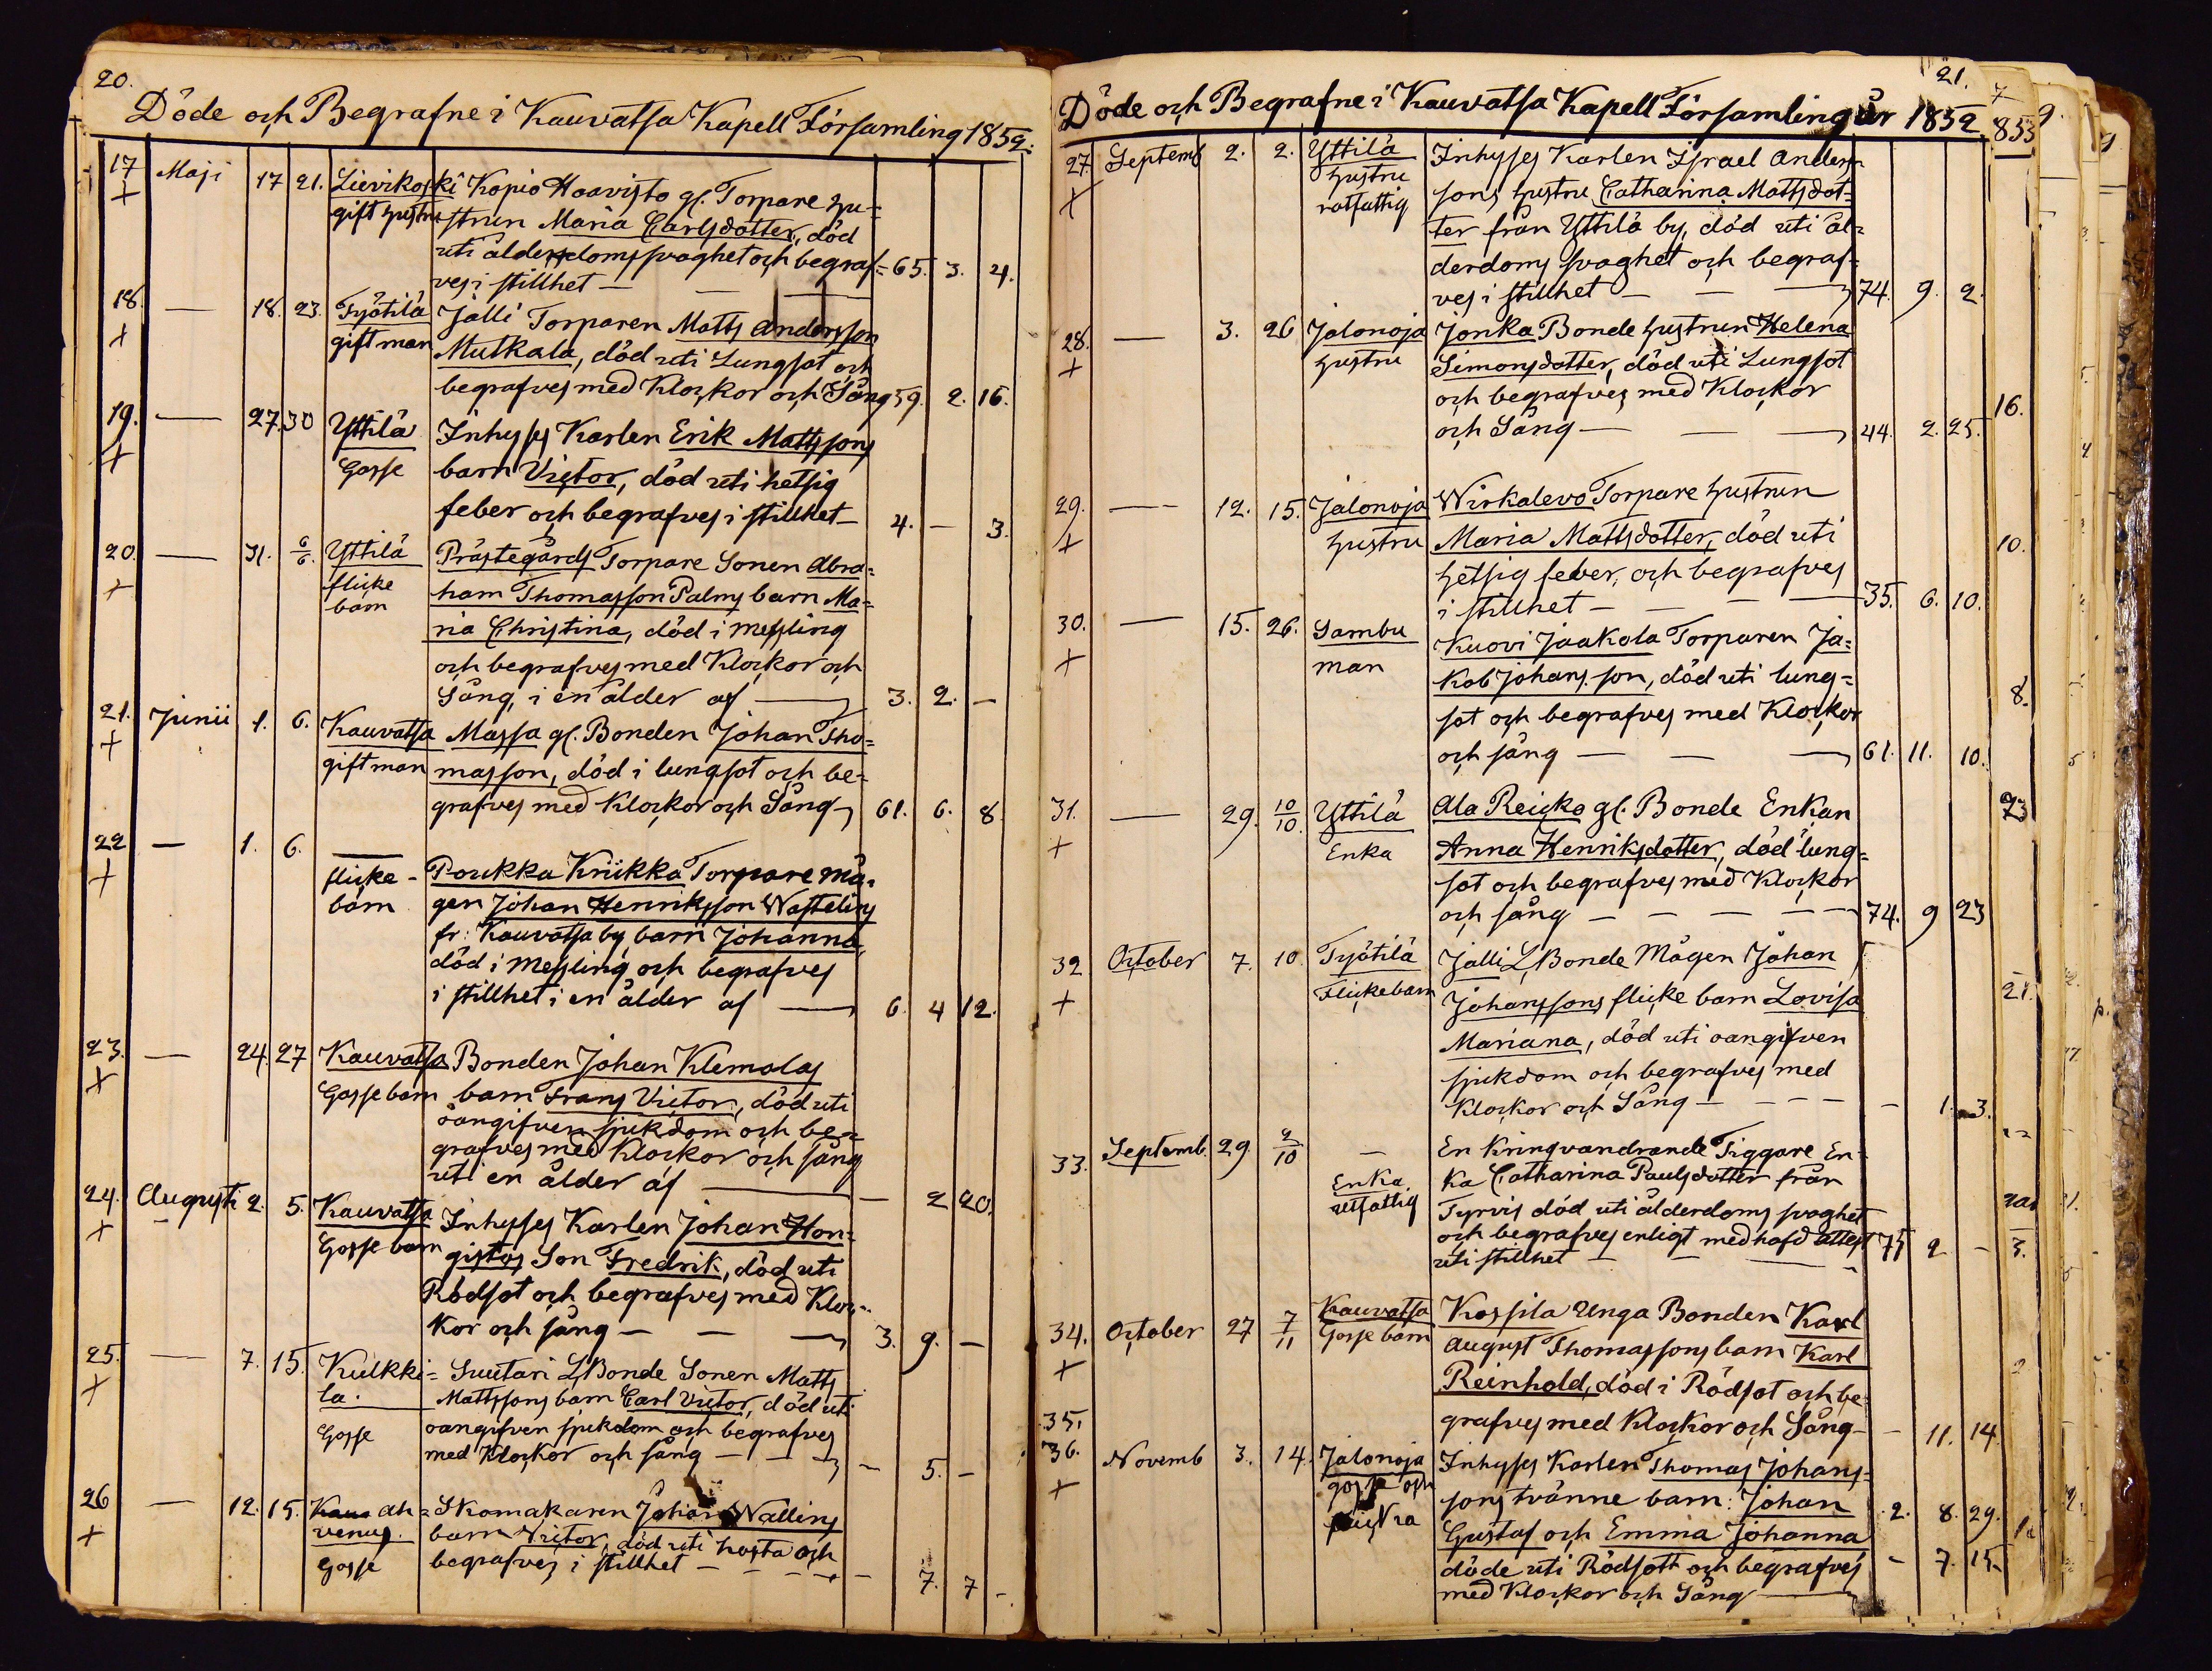 20.
Döde och Begrafne i Kauvatsa Kapell Församling 1852.
17 Maji 17 21. Lievikoski Kopio Haavisto gl. Torpare hu=
+ gift hustru strun Maria Carlsdotter, död
uti ålderdoms svaghet och begraf= 65. 3. 4.
ves i stillhet —
18. — 18. 23. Työtilä Jalli Torparen Matts Andersson
+ gift man Mutkala, död uti Lungsot och
begrafves med Klockor och Sång 59. 2. 16.
19. — 27. 30 Yttilä Inhyses Karlen Erik Mattssons
+ Gosse barn Victor, död uti hetsig
feber och begrafves i stillhet — 4. — 3.
20. — 31. 6/6. Yttilä Prästegårds Torpare Sonen Abra=
+ flicke ham Thomasson Palms barn Ma=
barn ria Christina, död i Messling
och begrafves med Klockor och
Sång, i en ålder af — 3. 2. —
21. Junii 1. 6. Kauvatsa Massa gl. Bonden Johan Tho=
+ gift man masson, död i lungsot och be=
grafves med Klockor och Sång 61. 6. 8
22 — 1. 6. — Poukka Kriikka Torpare Må=
+ flicke- gen Johan Henriksson Wastelins
barn fr: Kauvatsa by barn Johanna,
död i Messling och begrafves
i stillhet i en ålder af — 6. 4 12.
23. — 24. 27 Kauvatsa Bonden Johan Klemolas
+ Gosse barn barn Frans Victor, död uti
oangifven sjukdom och be=
grafves med Klockor och sång
uti en ålder af — — 2 20.
24. Augusti 2. 5. Kauvatsa Inhyses Karlen Johan Hon=
+ Gosse barn gistos Son Fredrik, död uti
Rödsot och begrafves med Kloc=
kor och sång — 3. 9. —
25. — 7. 15. Kulkki= Suutari L. Bonde Sonen Matts
+ la. Mattssons barn Carl Victor, död uti
Gosse oangifven sjukdom och begrafves
med Klockor och sång — — 5. —
26 — 12. 15. Ah= Skomakaren Johan Wallins
+ venus. barn Victor, död uti hosta och
Gosse begrafves i stillhet — — 7. 7 —
21.
Döde och Begrafne i Kauvatsa Kapell Församling år 1852
27. Septemb 2. 2. Yttilä Inhyses Karlen Israel Anders
+ hustru sons hustru Catharina Mattsdot=
rotfattig ter från Yttilä by, död uti ål=
derdoms svaghet och begraf=
ves i stillhet — 74. 9. 2.
28. — 3. 26 Jalonoja Jonka Bonde hustrun Helena
+ hustru Simonsdotter, död uti Lungsot
och begrafves med Klockor
och Sång — 44. 2. 25.
29. — 12. 15. Jalonoja Wirkalevo Torpare hustrun
+ hustru Maria Mattsdotter, död uti
hetsig feber, och begrafves
i stillhet — 35. 6. 10.
30. — 15. 26. Sambu Kuovi Jaakola Torparen Ja=
+ man kob Johansson, död uti lung=
sot och begrafves med Klockor
och sång — 61. 11. 10.
31. — 29. 10/10. Yttilä Ala Reicko gl. Bonde Enkan
+ Enka Anna Henriksdotter, död lung=
sot och begrafves med Klockor
och sång — 74. 9 23
32 October 7. 10 Työtilä Jalli L. Bonde Mågen Johan
+ Flickebarn Johanssons flicke barn Lovisa
Mariana, död uti oangifven
sjukdom och begrafves med
Klockor och Sång — — 1. 3.
33. Septemb. 29. 2/10 — En kringvandrande Tiggare En=
Enka ka Catharina Paulsdotter från
utfattig Tyrvis död uti ålderdoms svaghet
och begrafves enligt medhafd attest 75 2 —
uti stillhet —
34. October 27 7/11 Kauvatsa Kossila Unga Bonden Karl
+ Gosse barn August Thomassons barn Karl
Reinhold, död i Rödsot och be=
35. grafves med Klockor och Sång — — 11. 14
36. Novemb 3. 14. Jalonoja Inhyses Karlen Thomas Johans=
+ gosse och sons tvänne barn: Johan 2. 8. 29.
flicka Gustaf och Emma Johanna
döde uti Rödsott och begrafves — 7. 15
med Klockor och Sång —
7
853
16.
10.
8.
23
21.
3.